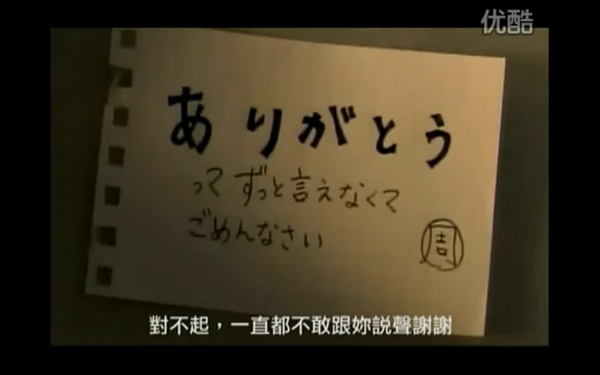 优酷
ありがとう
って ずっと言えなくて
ごめんなさい
周
對不起，一直都不敢跟妳說聲謝謝